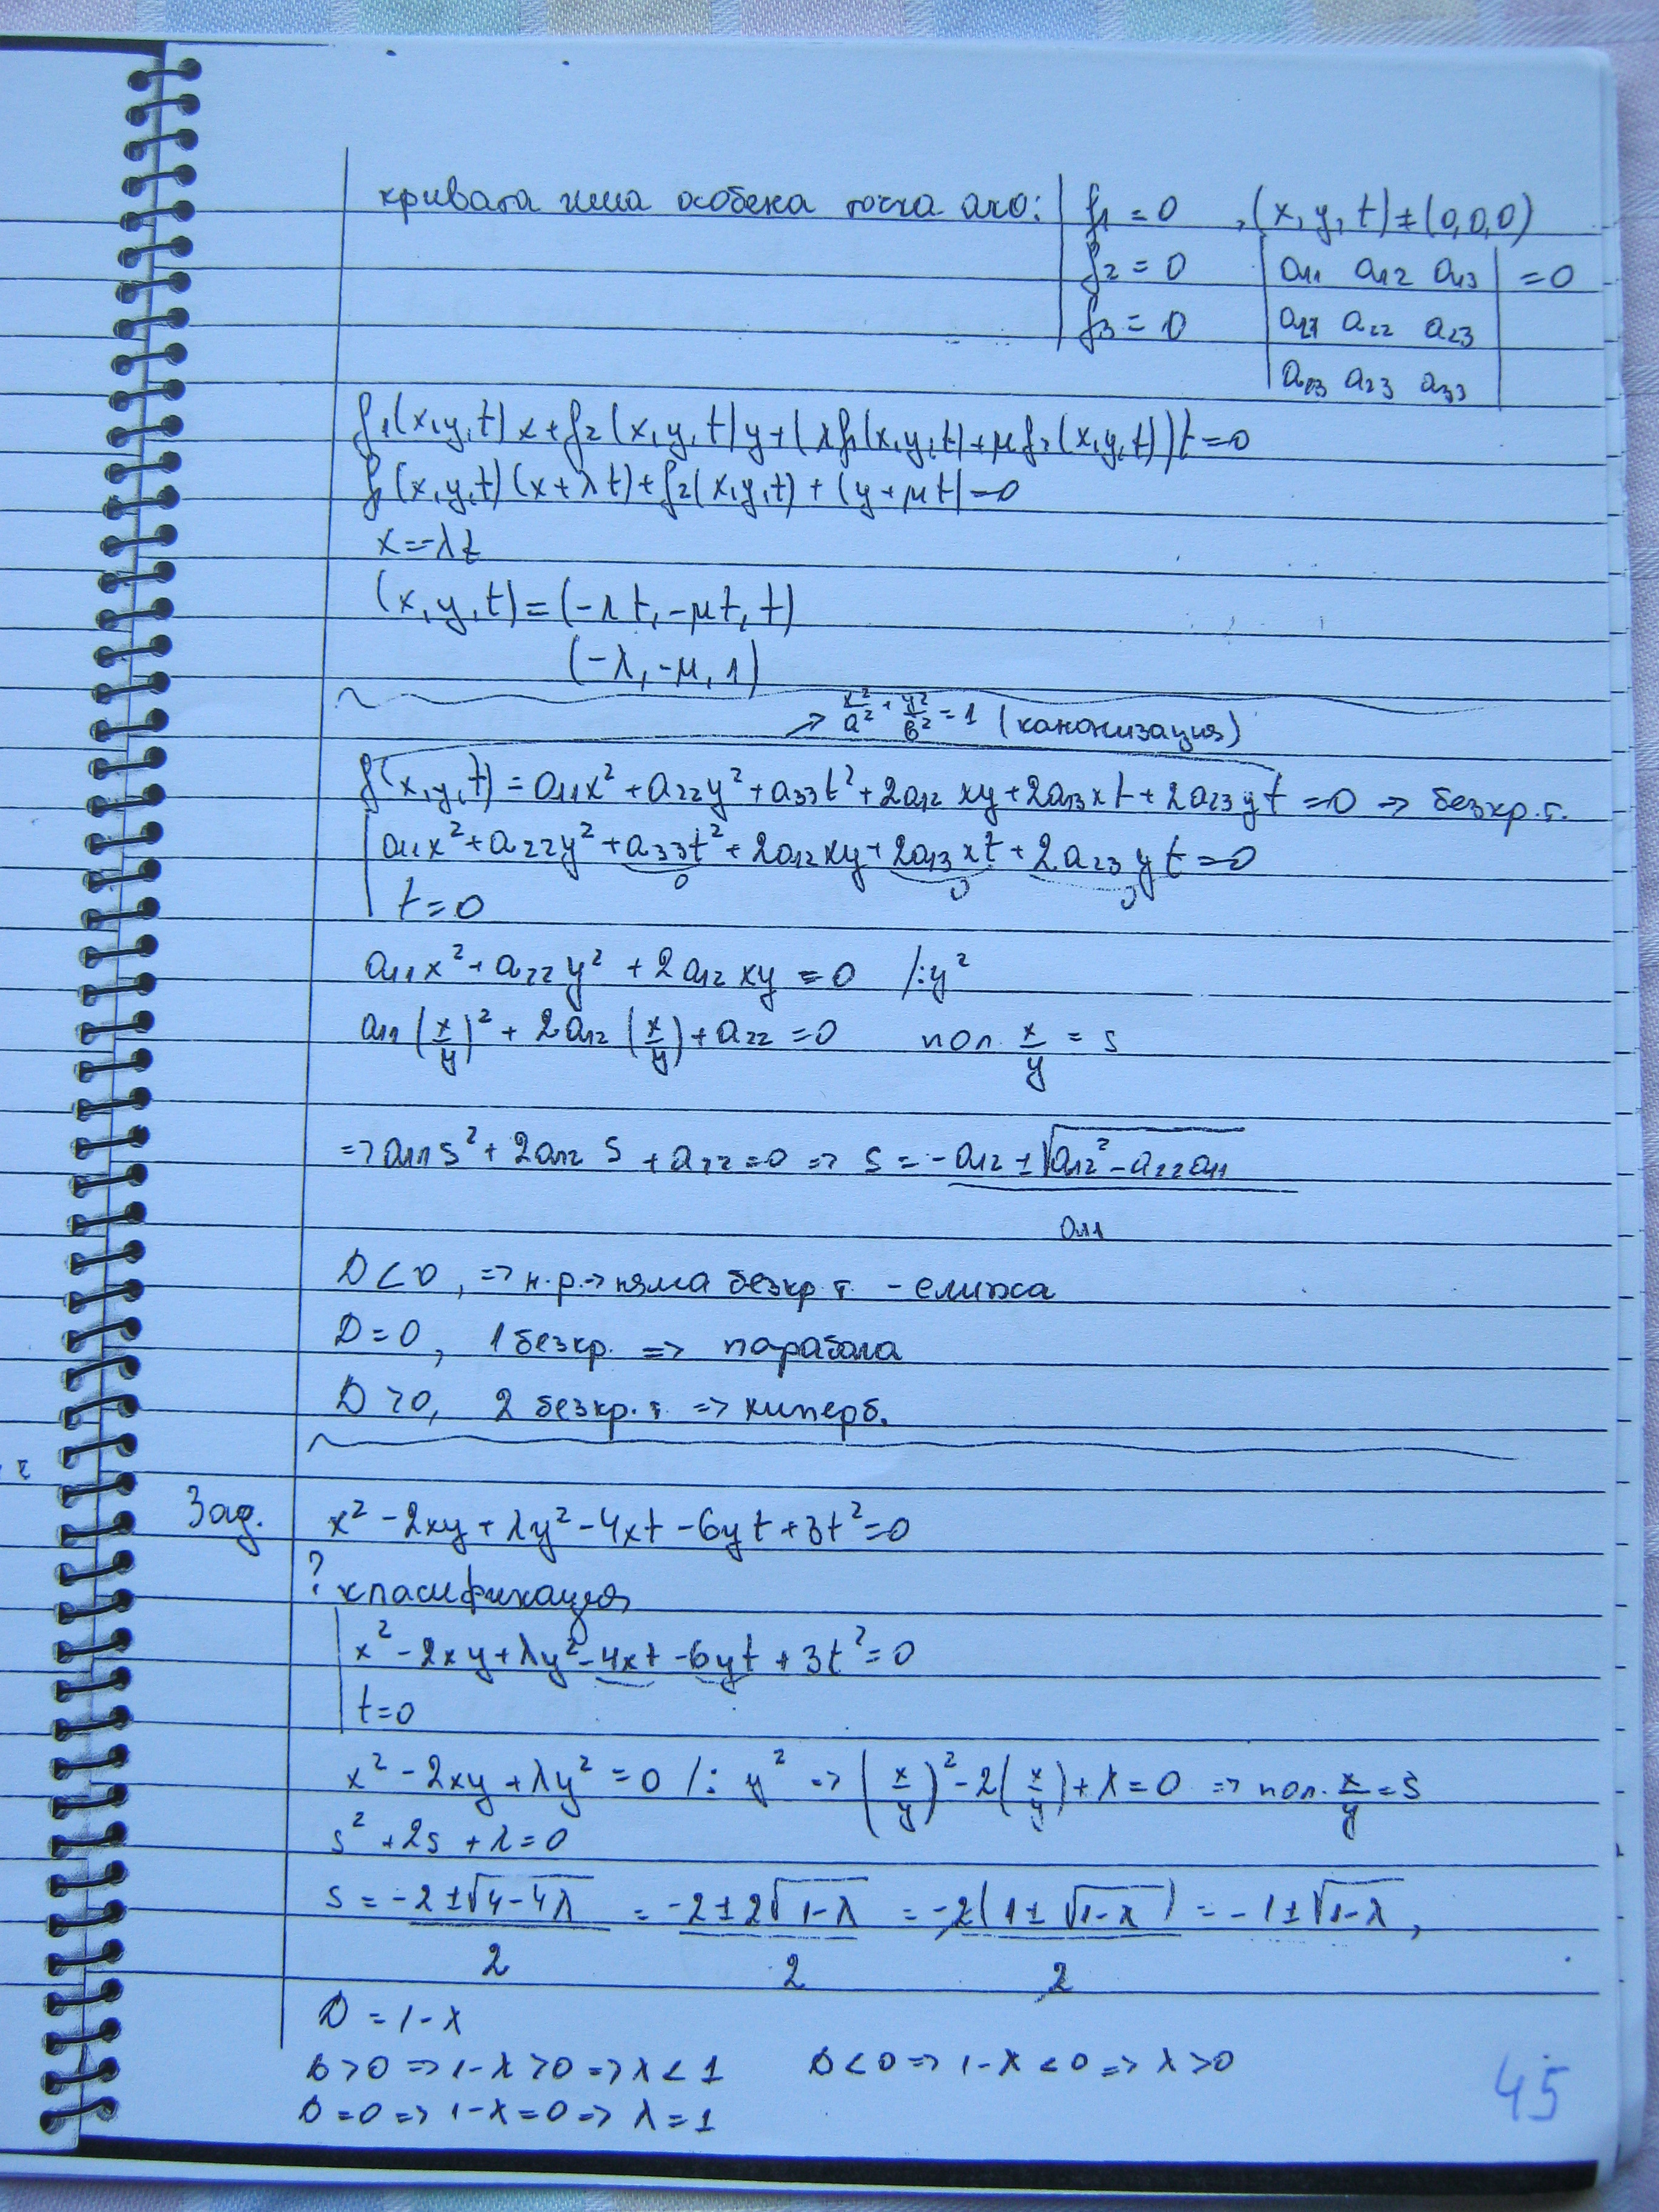 кривата има особена точка ако: | f₁ = 0 , (x, y, t) ≠ (0,0,0)
f₂ = 0 | a₁₁ a₁₂ a₁₃ | = 0
f₃ = 0 | a₁₂ a₂₂ a₂₃
a₁₃ a₂₃ a₃₃
f₁(x,y,t)x + f₂(x,y,t)y + (λf₁(x,y,t) + μf₂(x,y,t))t = 0
f₁(x,y,t)(x+λt) + f₂(x,y,t) + (y+μt) = 0
x = -λt
(x,y,t) = (-λt, -μt, t)
(-λ, -μ, 1)
→ x²/a² + y²/b² = 1 (канонизация)
f(x,y,t) = a₁₁x² + a₂₂y² + a₃₃t² + 2a₁₂xy + 2a₁₃xt + 2a₂₃yt = 0 → безкр.т.
| a₁₁x² + a₂₂y² + a₃₃t² + 2a₁₂xy + 2a₁₃xt + 2a₂₃yt = 0
0 0 0
t = 0
a₁₁x² + a₂₂y² + 2a₁₂xy = 0 /:y²
a₁₁(x/y)² + 2a₁₂(x/y) + a₂₂ = 0 пол. x/y = s
=> a₁₁s² + 2a₁₂s + a₂₂ = 0 => s = -a₁₂ ± √(a₁₂² - a₂₂a₁₁)
a₁₁
D < 0, => н.р. → няма безкр.т. - елипса
D = 0, 1 безкр. => парабола
D > 0, 2 безкр.т. => хиперб.
Зад. x² - 2xy + λy² - 4xt - 6yt + 3t² = 0
? класификация
| x² - 2xy + λy² - 4xt - 6yt + 3t² = 0
| t = 0
x² - 2xy + λy² = 0 /: y² => (x/y)² - 2(x/y) + λ = 0 => пол. x/y = s
s² + 2s + λ = 0
s = -2 ± √4-4λ = -2 ± 2√1-λ = -2(1 ± √1-λ) = -1 ± √1-λ,
2 2 2
D = 1-λ
D > 0 => 1-λ > 0 => λ < 1 D < 0 => 1-λ < 0 => λ > 0
D = 0 => 1-λ = 0 => λ = 1
45